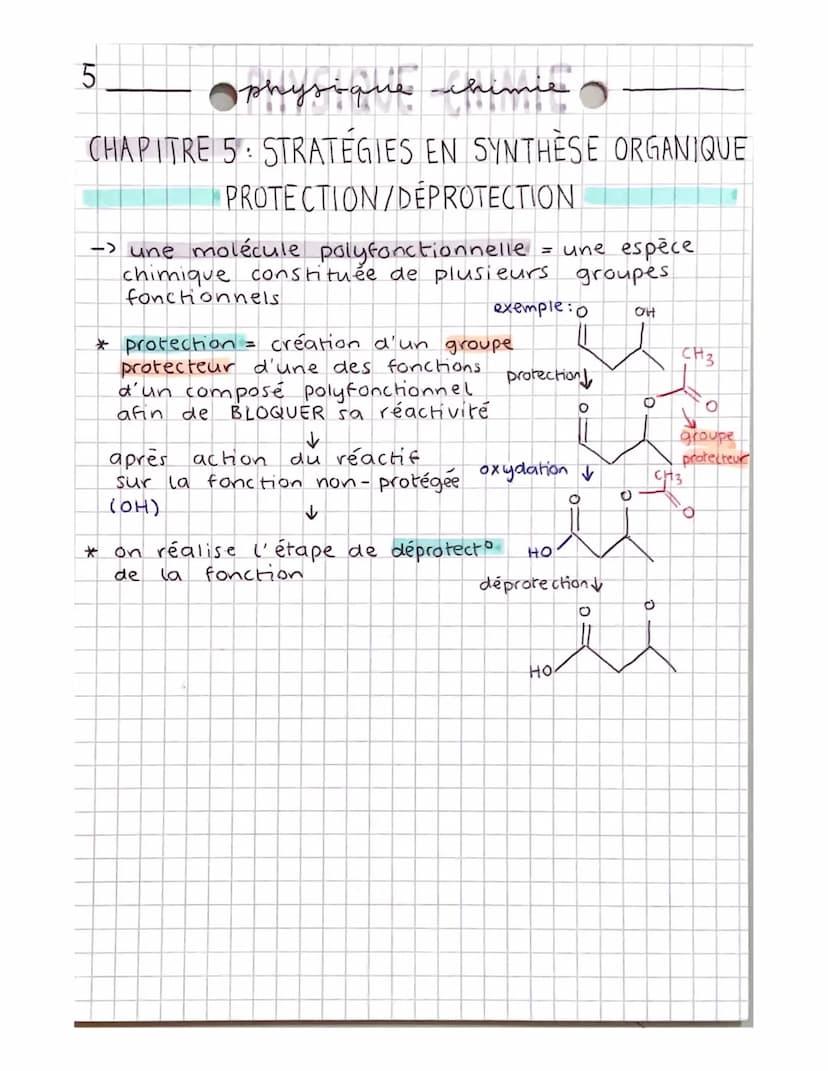 5
PHYSIQUE-CHIMIE
physique-chimie
CHAPITRE 5 : STRATÉGIES EN SYNTHÈSE ORGANIQUE
PROTECTION/DÉPROTECTION
-> une molécule polyfonctionnelle = une espèce
chimique constituée de plusieurs groupes
fonctionnels
exemple :
O OH
* protection = création d'un groupe
protecteur d'une des fonctions
d'un composé polyfonctionnel
afin de BLOQUER sa réactivité
↓
après action du réactif
sur la fonction non-protégée
(OH)
↓
* on réalise l'étape de déprotect°
de la fonction
protection ↓
CH3
O O O
groupe
protecteur
oxydation ↓
CH3
O O O
HO
déprotection ↓
O O
HO